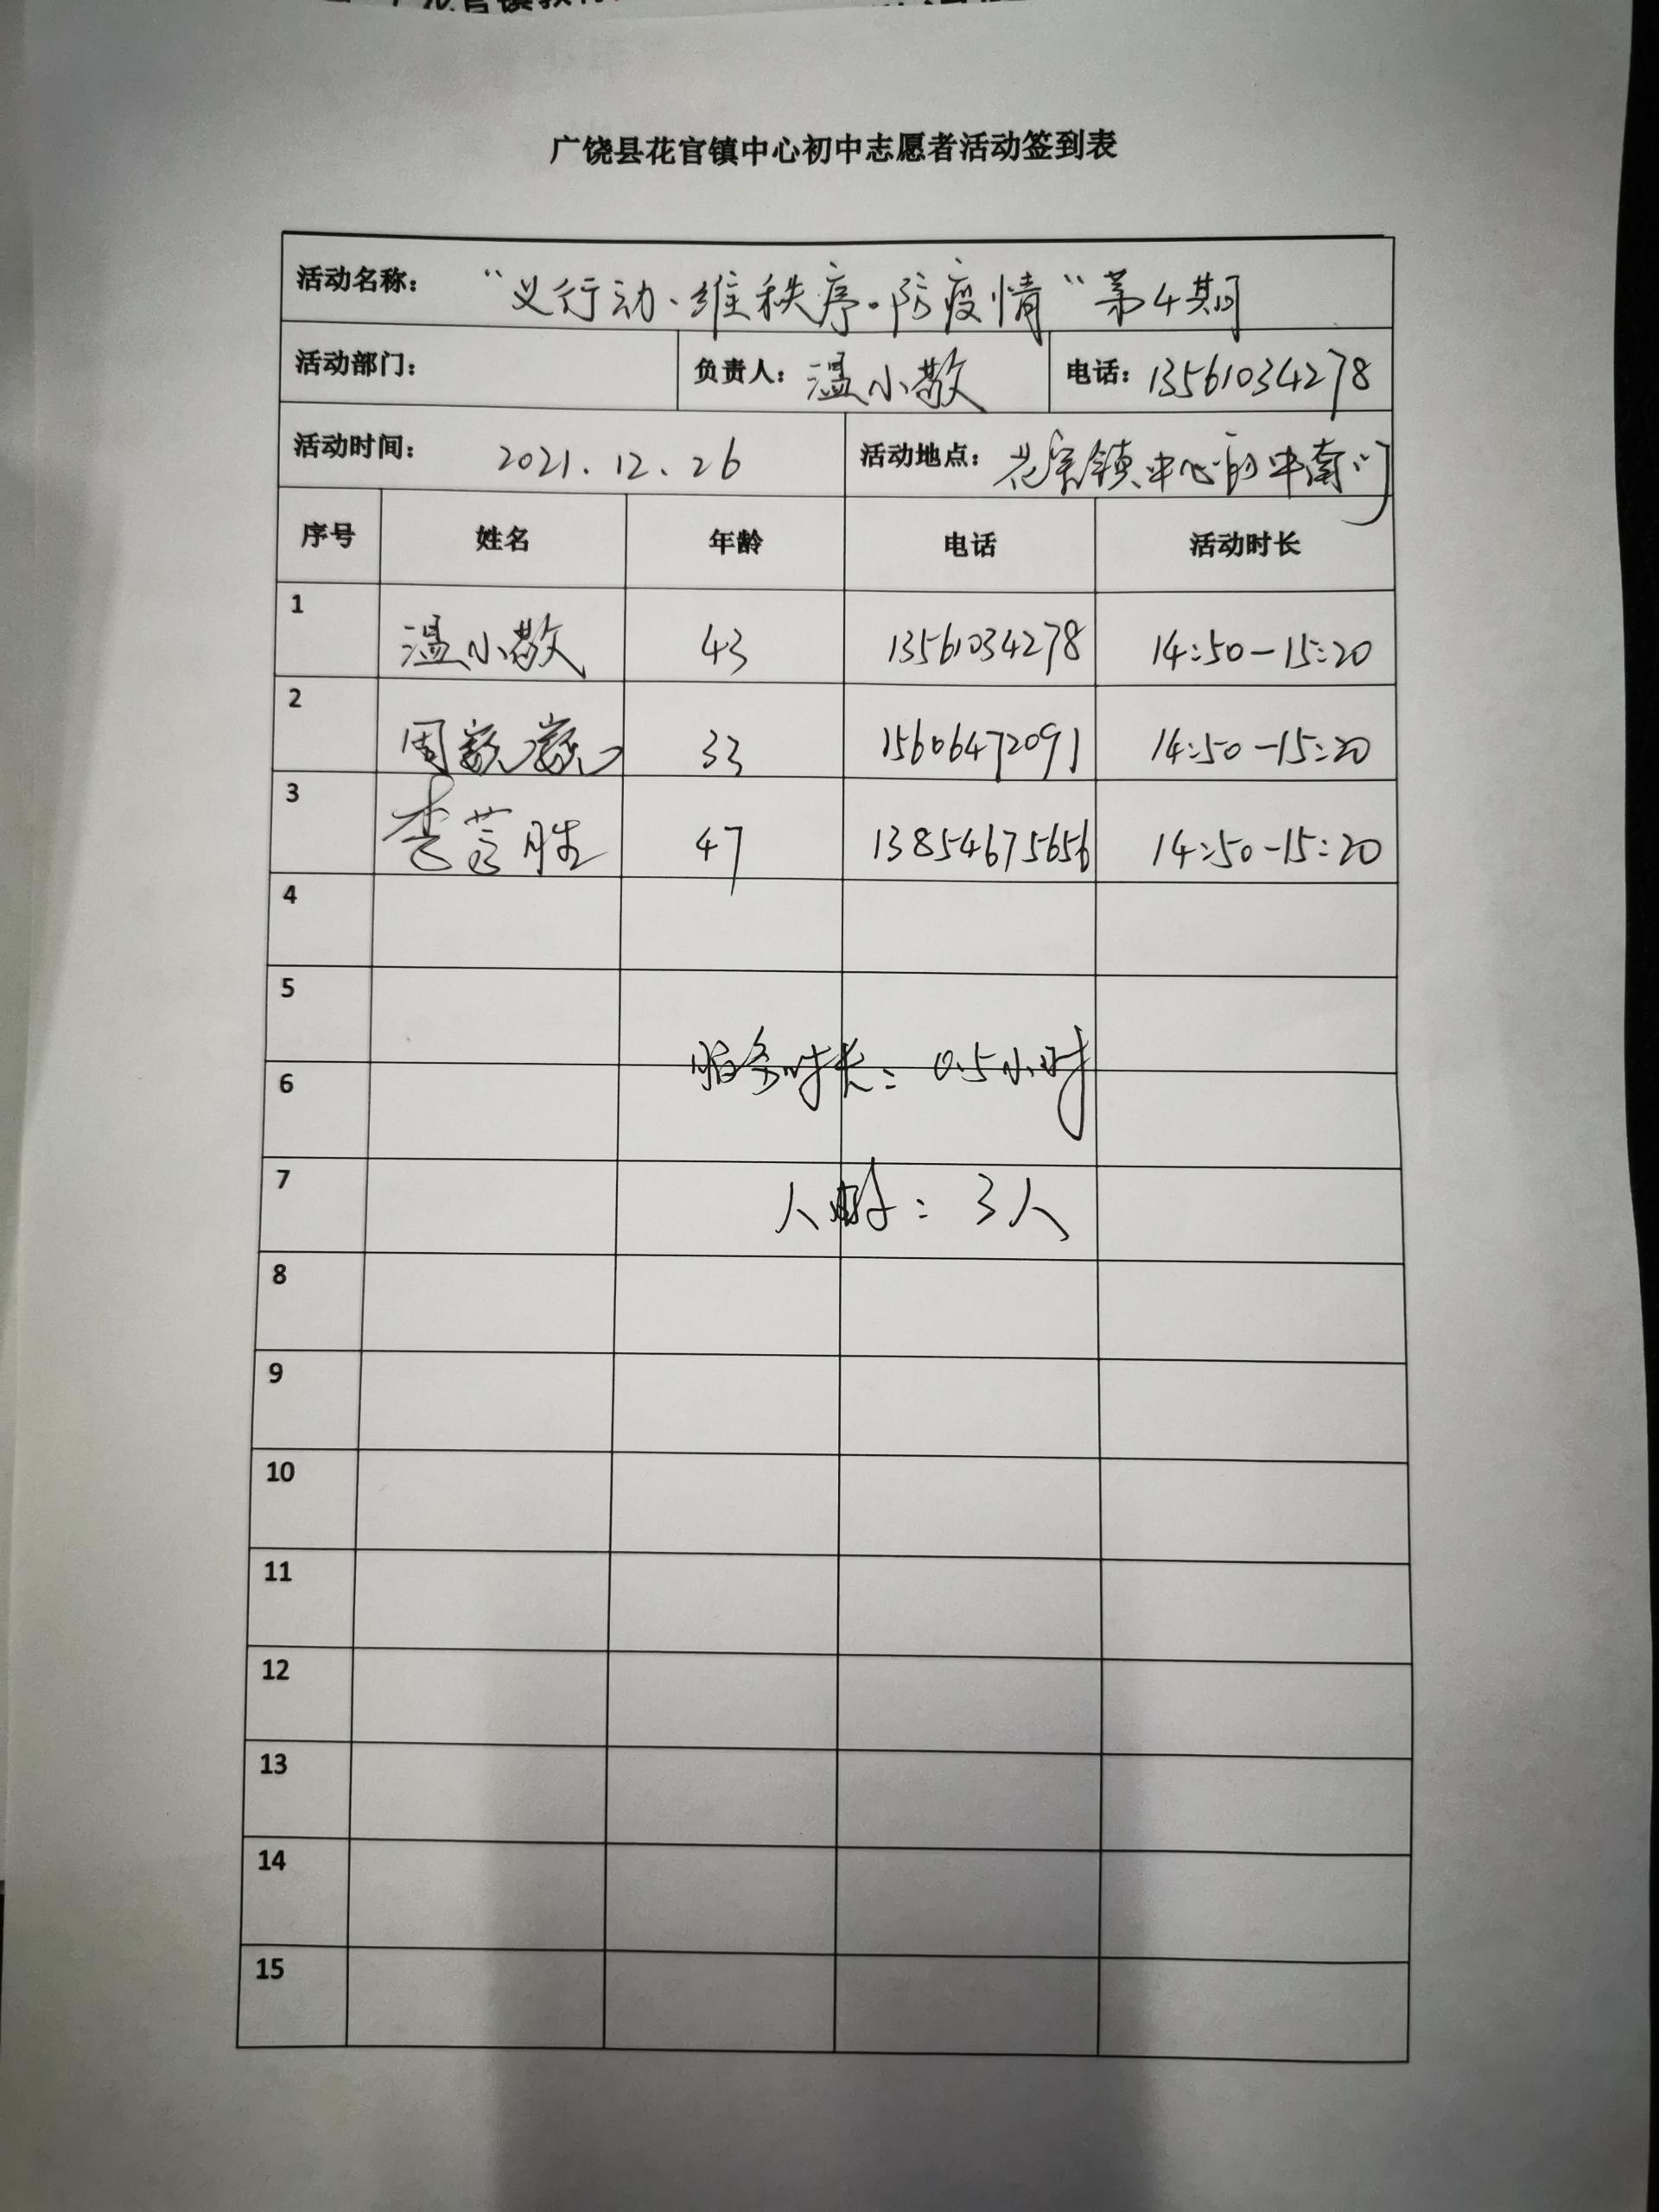 广饶县花官镇中心初中志愿者活动签到表
活动名称： “义行动、维秩序。防疫情”第4期
活动部门： 负责人：温小散 电话：13561034278
活动时间： 2021.12.26 活动地点：花官镇中心初中南门
序号 姓名 年龄 电话 活动时长
1 温小散 43 13561034278 14:50-15:20
2 周 33 15606472091 14:50-15:20
3 李 胜 47 13854675656 14:50-15:20
4
5
服务时长：0.5小时
6
7 人 ：3人
8
9
10
11
12
13
14
15